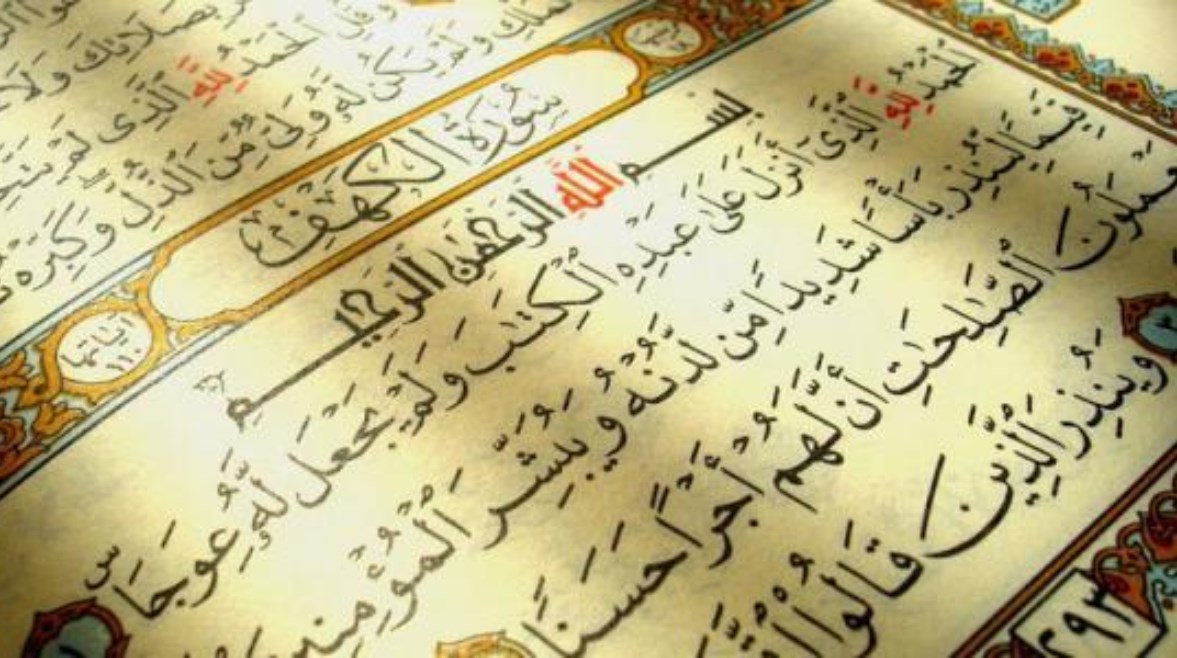 بِصَلَاتِكَ وَلَا
وَقُلِ ٱلْحَمْدُ لِلَّهِ ٱلَّذِى لَمْ
وَلَمْ يَكُن لَّهُۥ وَلِىٌّ مِّنَ ٱلذُّلِّ وَكَبِّرْهُ
سُورَةُ الكَهْفِ
آيَاتُهَا ١١٠
بِسْمِ ٱللَّهِ ٱلرَّحْمَٰنِ ٱلرَّحِيمِ
ٱلْحَمْدُ لِلَّهِ ٱلَّذِىٓ أَنزَلَ عَلَىٰ عَبْدِهِ ٱلْكِتَٰبَ وَلَمْ يَجْعَل لَّهُۥ عِوَجَاۜ ١
قَيِّمًا لِّيُنذِرَ بَأْسًا شَدِيدًا مِّن لَّدُنْهُ وَيُبَشِّرَ ٱلْمُؤْمِنِينَ
يَعْمَلُونَ ٱلصَّٰلِحَٰتِ أَنَّ لَهُمْ أَجْرًا حَسَنًا
٣ وَيُنذِرَ ٱلَّذِينَ قَالُوا۟
٢٩٣